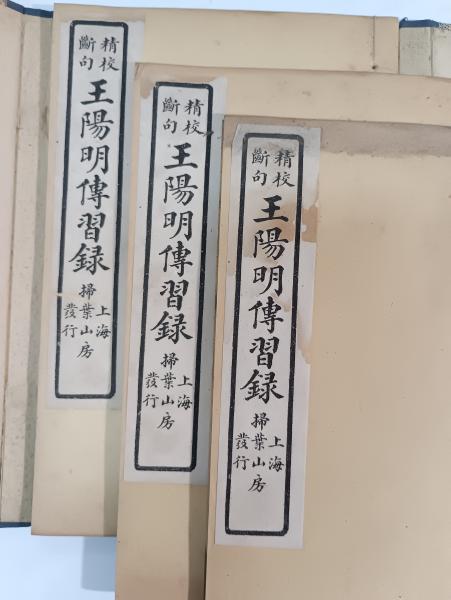 精校
斷句
王陽明傳習録
上海
掃葉山房
發行
精校
斷句
王陽明傳習録
上海
掃葉山房
發行
精校
斷句
王陽明傳習録
上海
掃葉山房
發行